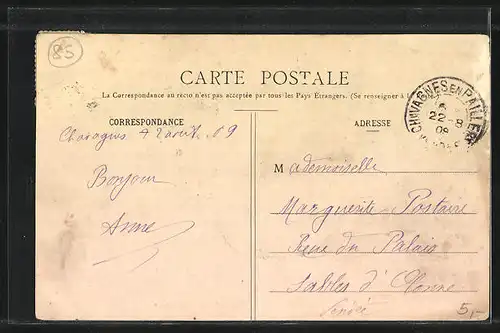 85
CARTE POSTALE
La Correspondance au recto n'est pas acceptée par tous les Pays Etrangers. (Se renseigner à
CORRESPONDANCE
ADRESSE
CHAVAGNES EN PAILLERS
22-8
09
août 09
Bonjour
Anne
Mademoiselle
Marguerite Postaire
Rue du Palais
Sables d'Olonne
Vendée
5,-